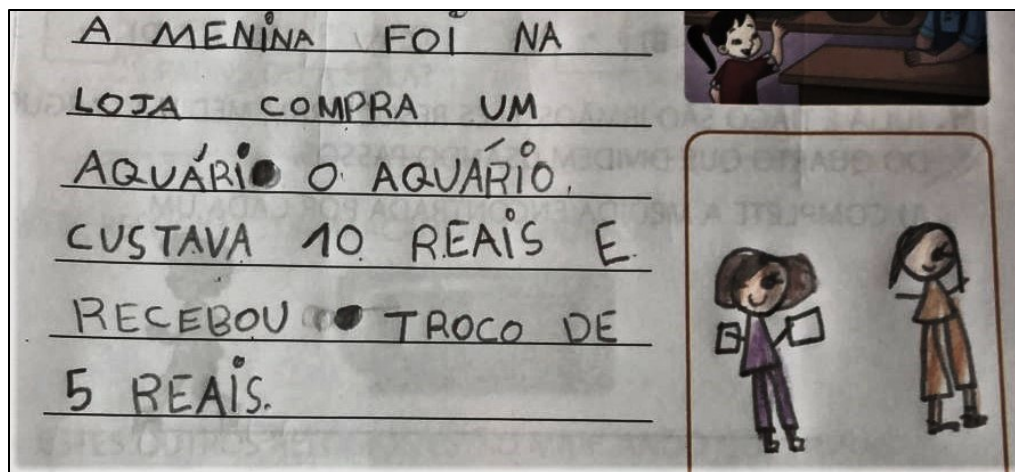 A MENINA FOI NA
LOJA COMPRA UM
AQUÁRIO O AQUÁRIO.
CUSTAVA 10 REAIS E.
RECEBOU O TROCO DE
5 REAIS.